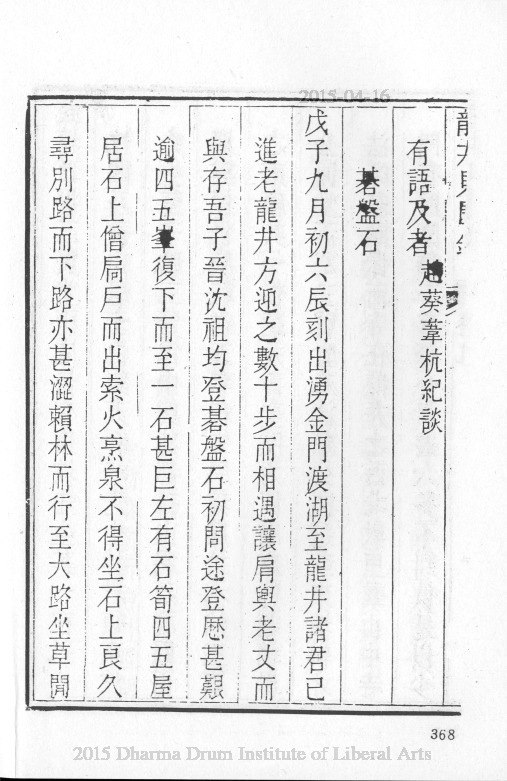 2015-04-16
龍井見聞錄
有語及者趙葵葦杭紀談
碁盤石
戊子九月初六辰刻出湧金門渡湖至龍井諸君已
進老龍井方迎之數十步而相遇讓肩輿老丈而
與存吾子晉沈祖均登碁盤石初問途登歷甚艱
逾四五峯復下而至一石甚巨左有石筍四五屋
居石上僧扃戶而出索火烹泉不得坐石上良久
尋別路而下路亦甚澀賴林而行至大路坐草間
368
2015 Dharma Drum Institute of Liberal Arts